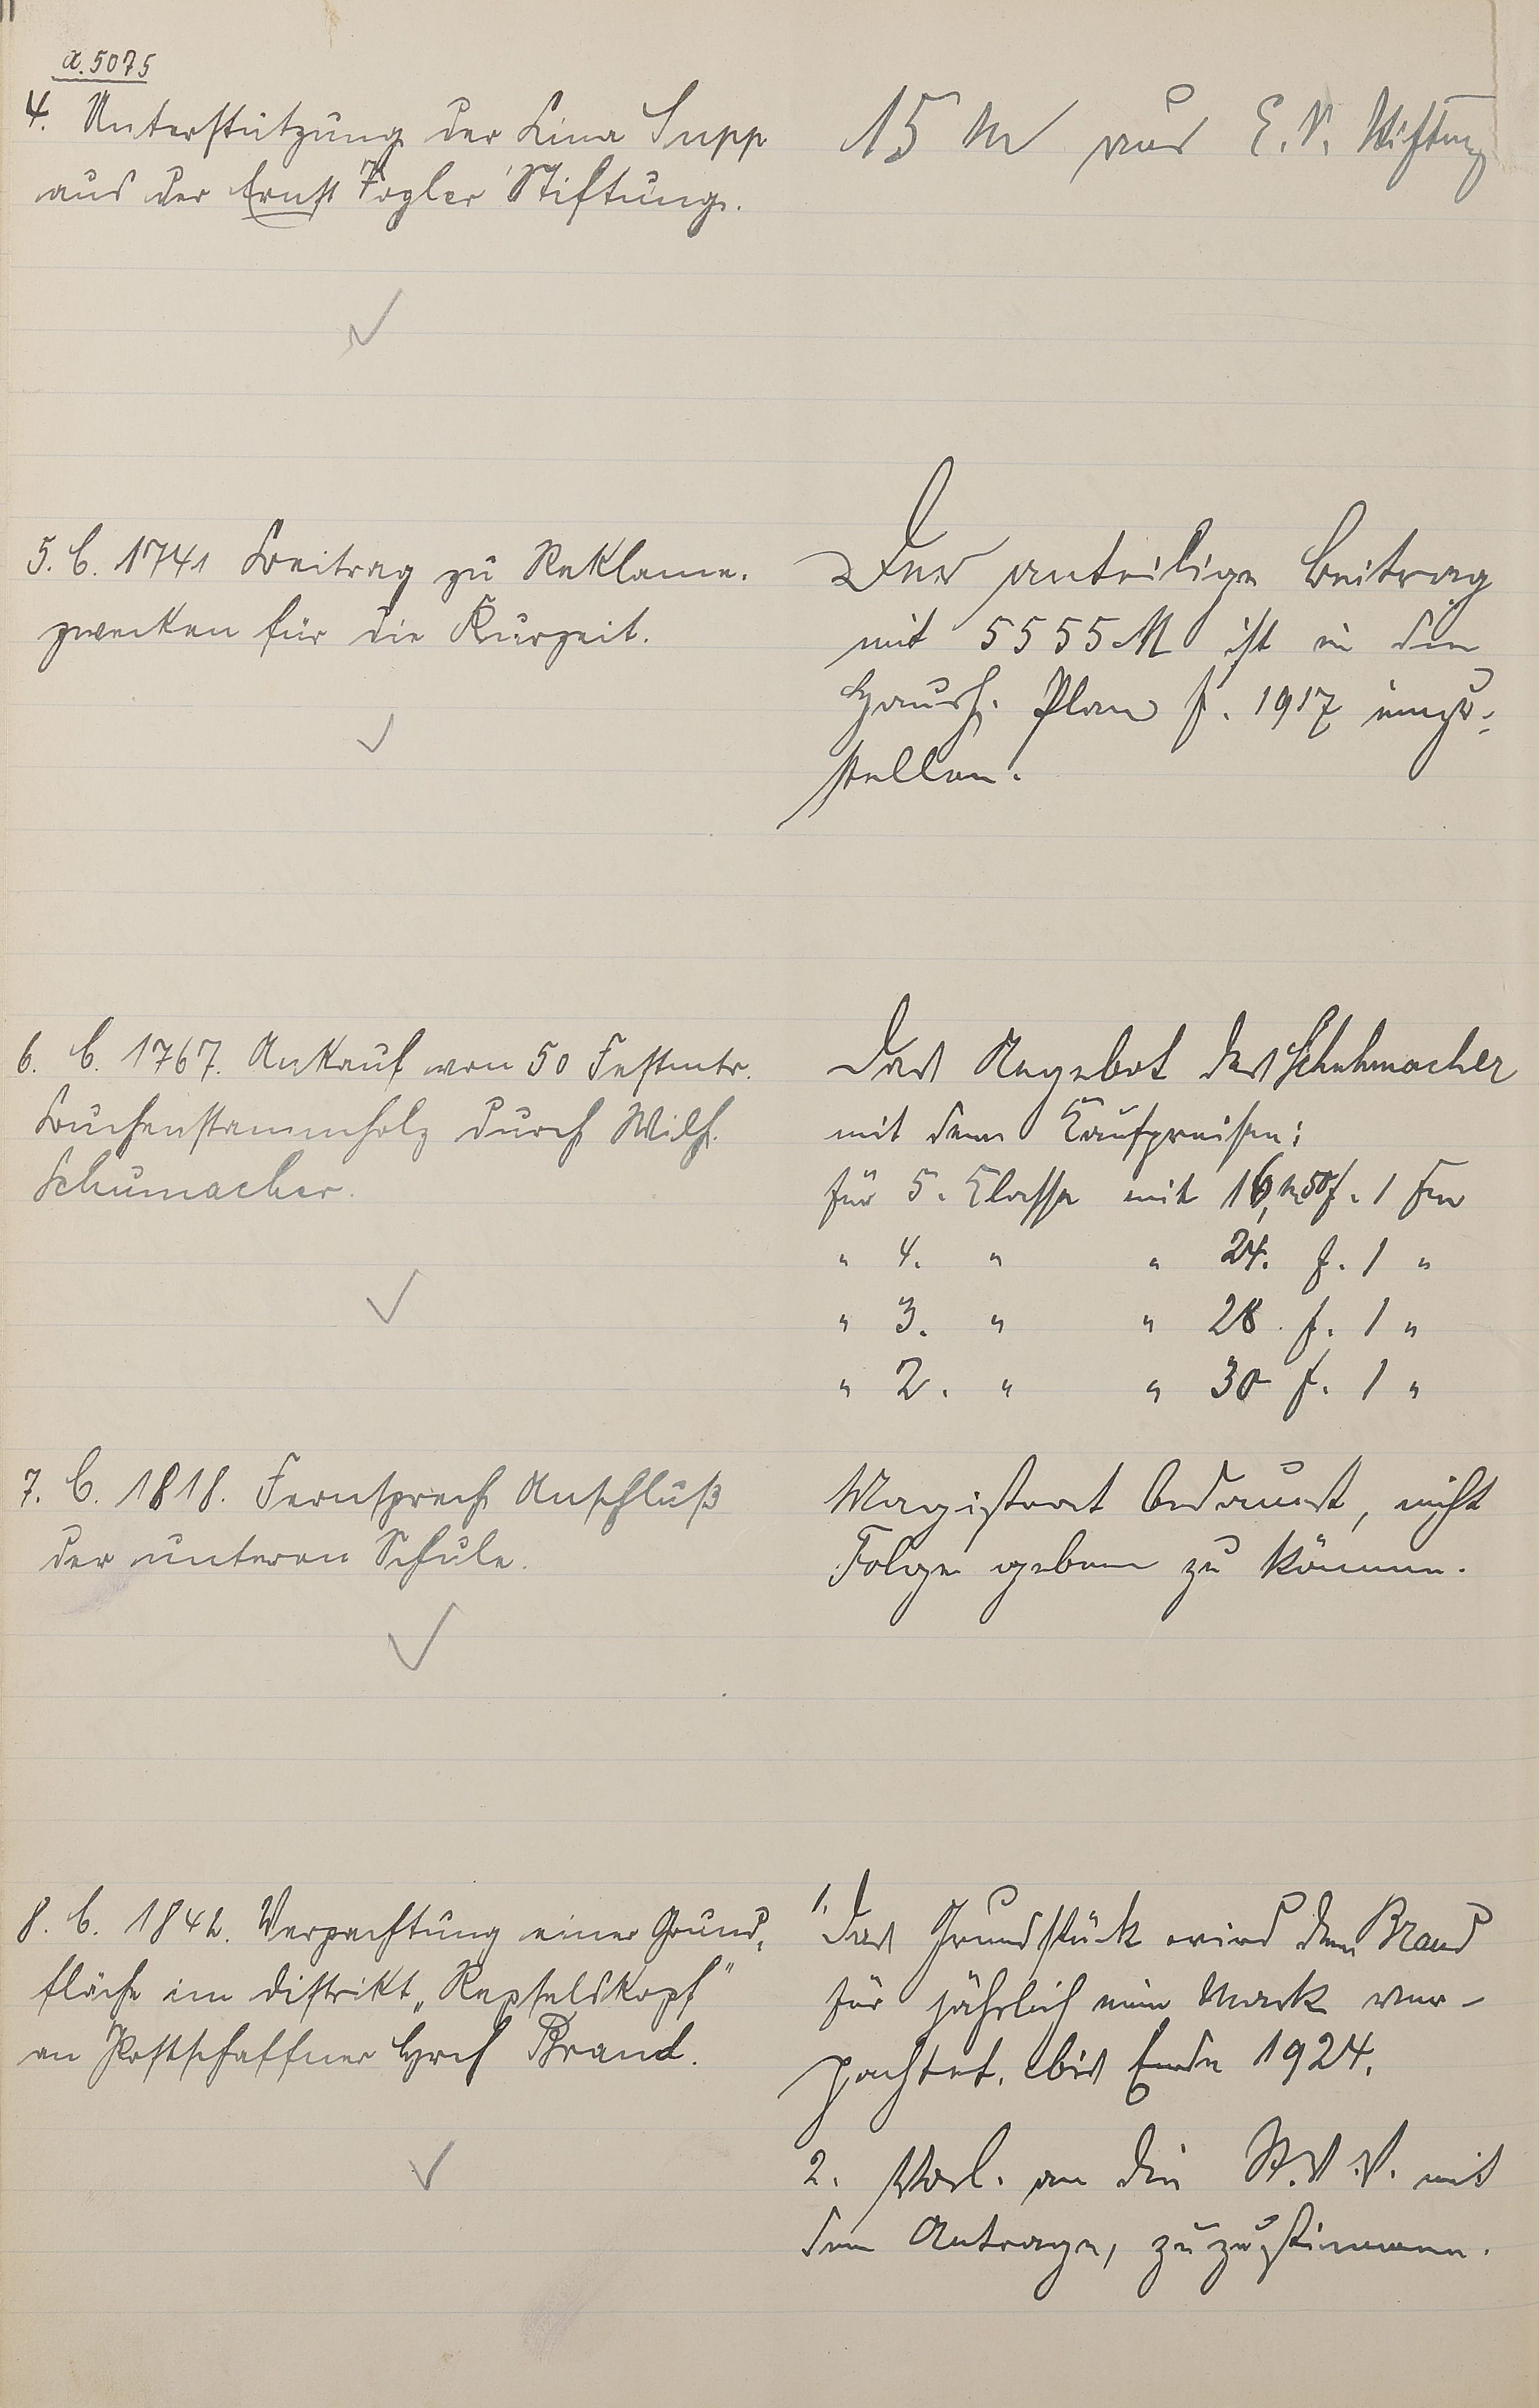 a. 5075
4. Unterstützung der Lina Supp
aus der Ernst Vogler Stiftung.
15 M aus E. V. Stiftung
5. C. 1741 Beitrag zu Reklame-
zwecken für die Kurzeit.
Der anteilige Beitrag
mit 5555 M ist in den
Haush. Plan f. 1917 einzu-
stellen.
6. C. 1767. Ankauf von 50 Festmtr.
Buchenstammholz durch Wilh.
Schumacher.
Das Angebot des Schuhmacher
mit den Kaufpreisen:
für 5. Classe mit 16,50 f. 1 Fm
" 4. " " 24. f. 1 "
" 3. " " 28 f. 1 "
" 2. " " 30 f. 1 "
7. C. 1818. Fernsprech Anschluß
der unteren Schule.
Magistrat bedauert, nicht
Folge geben zu können.
8. C. 1842. Verpachtung einer Grund-
fläche im Distrikt "Repselskopf"
an Postschaffner Hrch Brand.
1. Das Grundstück wird dem Brand
für jährlich eine Mark ver-
pachtet. bis Ende 1924.
2. Vorl. an die St. V. V. mit
dem Antrage, zuzustimmen.